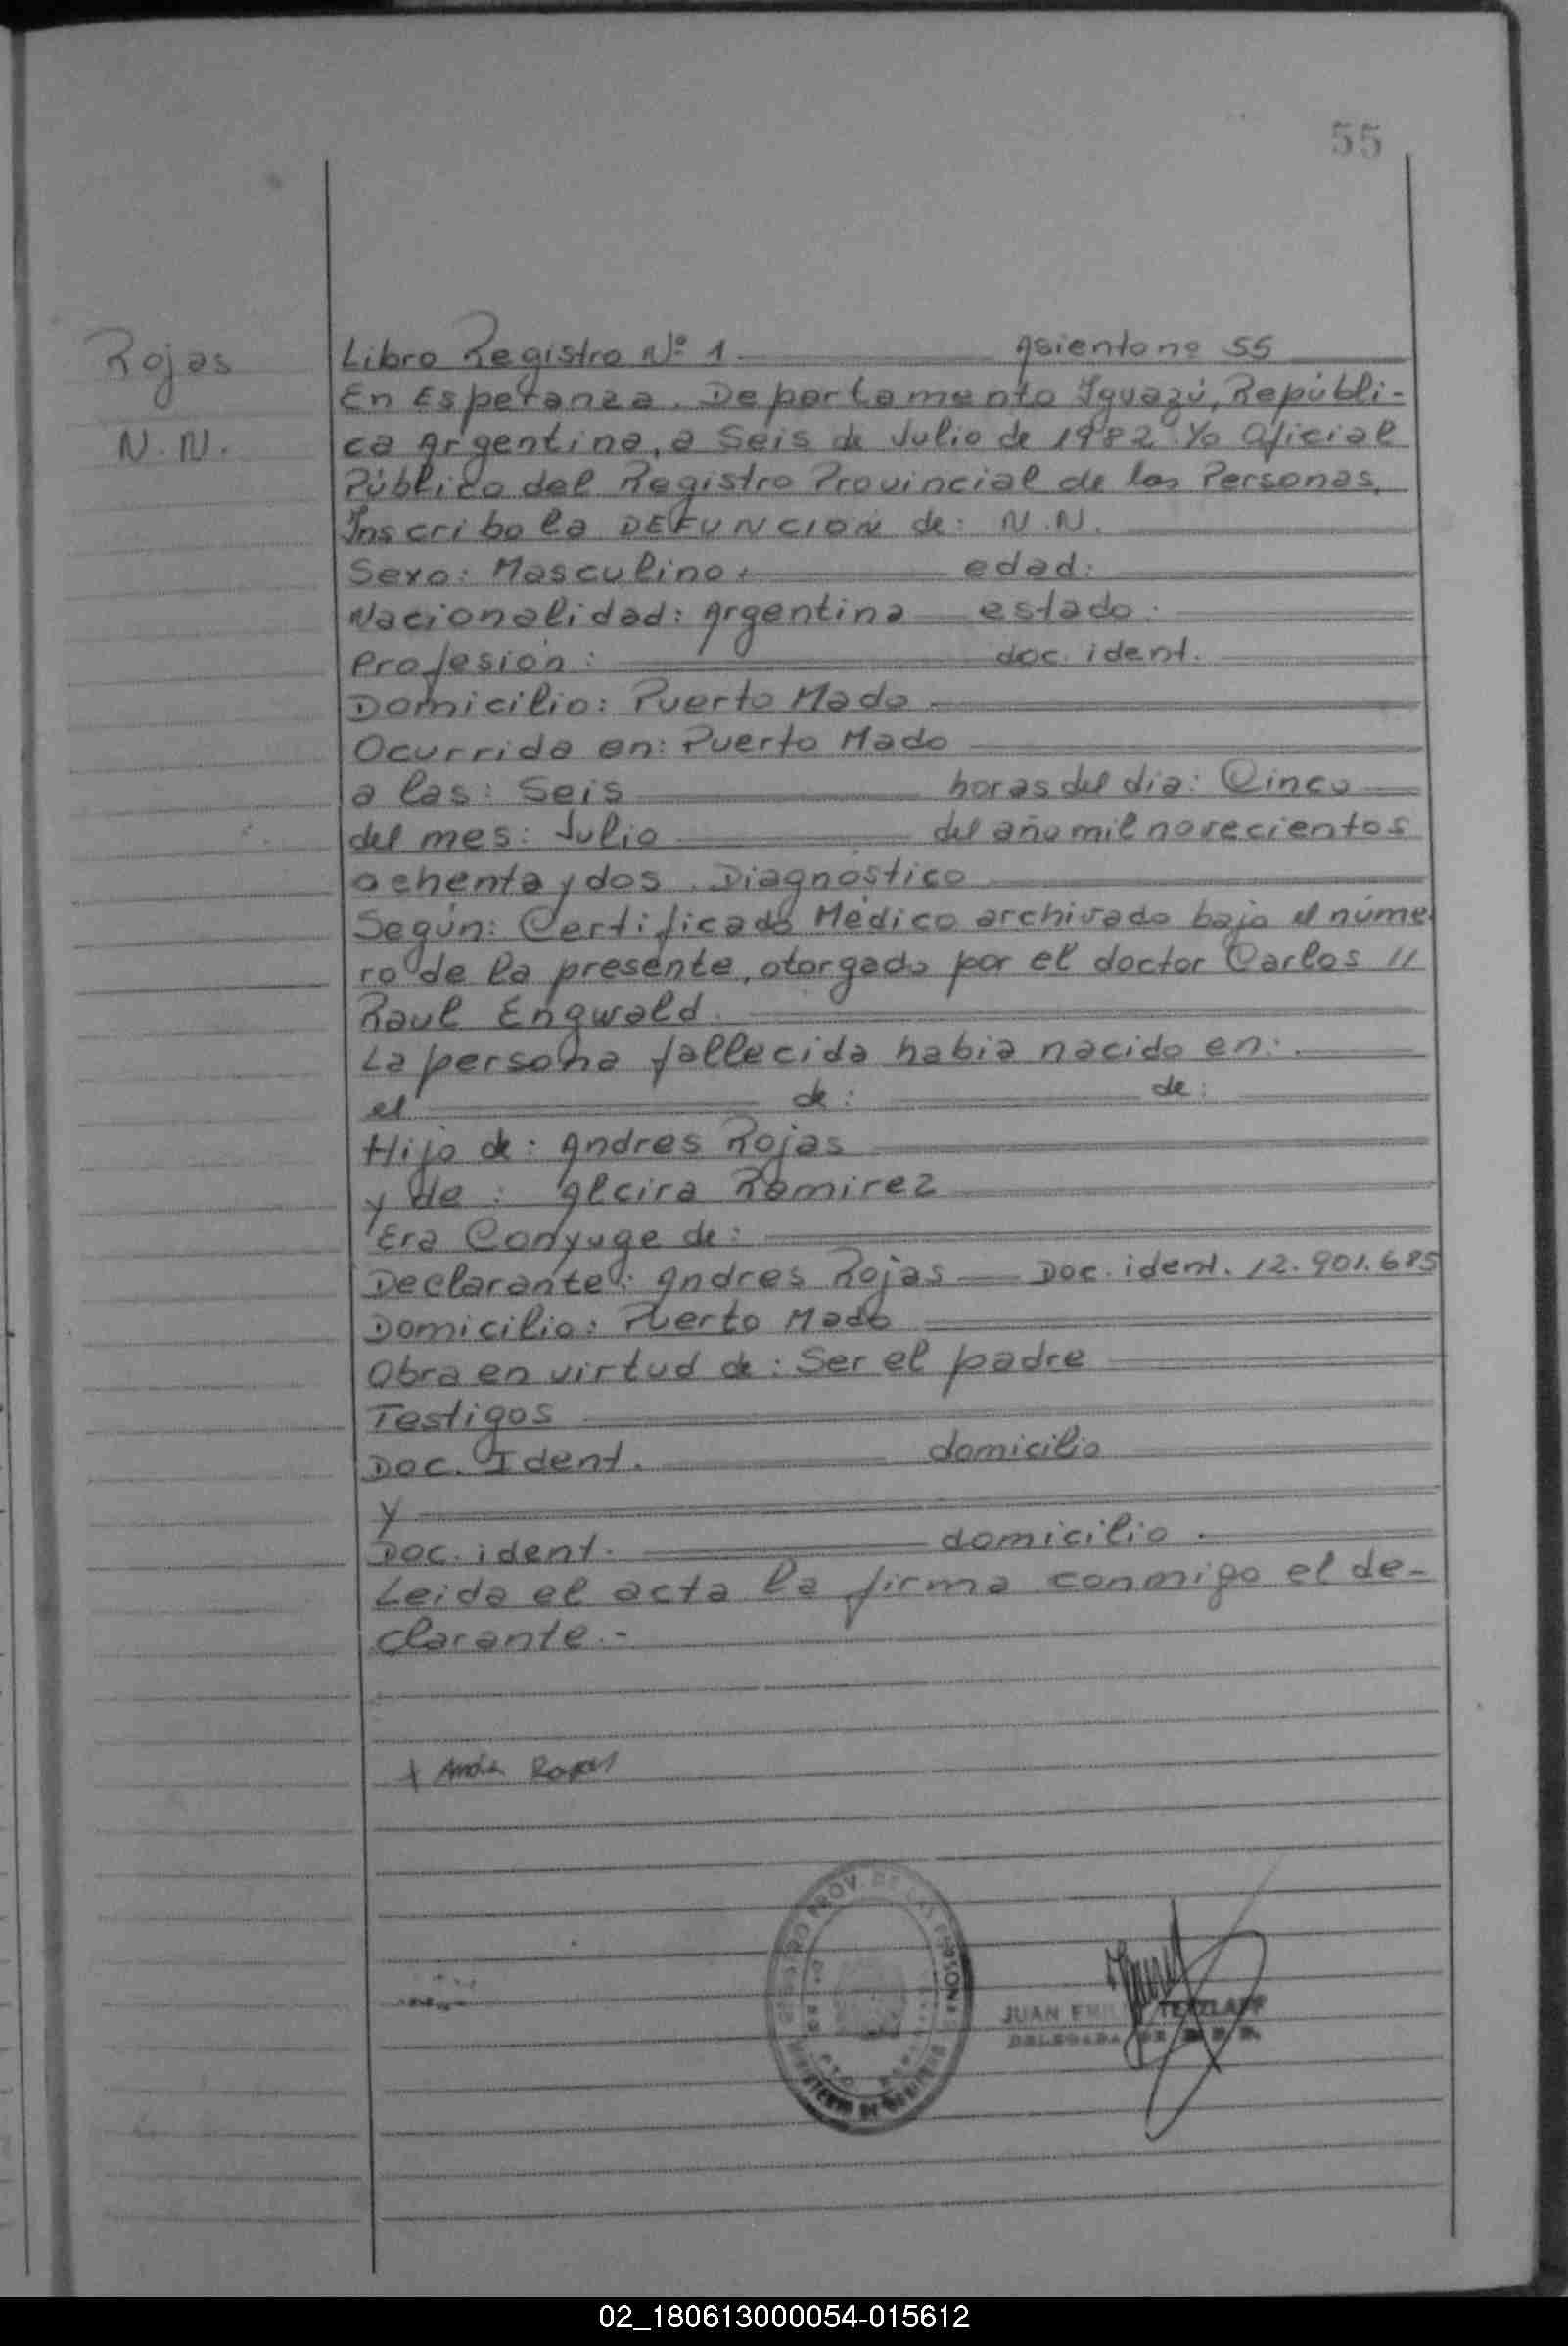 55
Rojas
N.N.
Libro Registro Nº 1 Asiento nº 55
En Esperanza. Departamento Iguazú, Repúbli-
ca Argentina, a Seis de Julio de 1982. Yo Oficial
Público del Registro Provincial de las Personas,
Inscribo la DEFUNCION de: N.N.
Sexo: Masculino. edad:
Nacionalidad: Argentina estado:
Profesión: doc. ident.
Domicilio: Puerto Mado
Ocurrida en: Puerto Mado
a las: Seis horas del dia: Cinco
del mes: Julio del año mil novecientos
ochenta y dos. Diagnóstico
Según: Certificado Médico archivado bajo el núme
ro de la presente, otorgado por el doctor Carlos //
Raul Engwald.
La persona fallecida habia nacido en:
el de: de:
Hijo de: Andres Rojas
y de: Alcira Ramirez
Era Conyuge de:
Declarante: Andres Rojas Doc. ident. 12.901.685
Domicilio: Puerto Mado
Obra en virtud de: Ser el padre
Testigos
Doc. Ident. domicilio
y
Doc. ident. domicilio.
Leida el acta la firma conmigo el de-
clarante.-
+ Rojas
REGISTRO PROV. DE LAS PERSONAS
MINISTERIO DE GOBIERNO
JUAN EMILIO TETZLAFF
DELEGADA DE R. P. P.
02_180613000054-015612